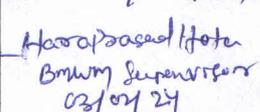 Haraprasad Hota
BMWM Supervisor
03/07/24